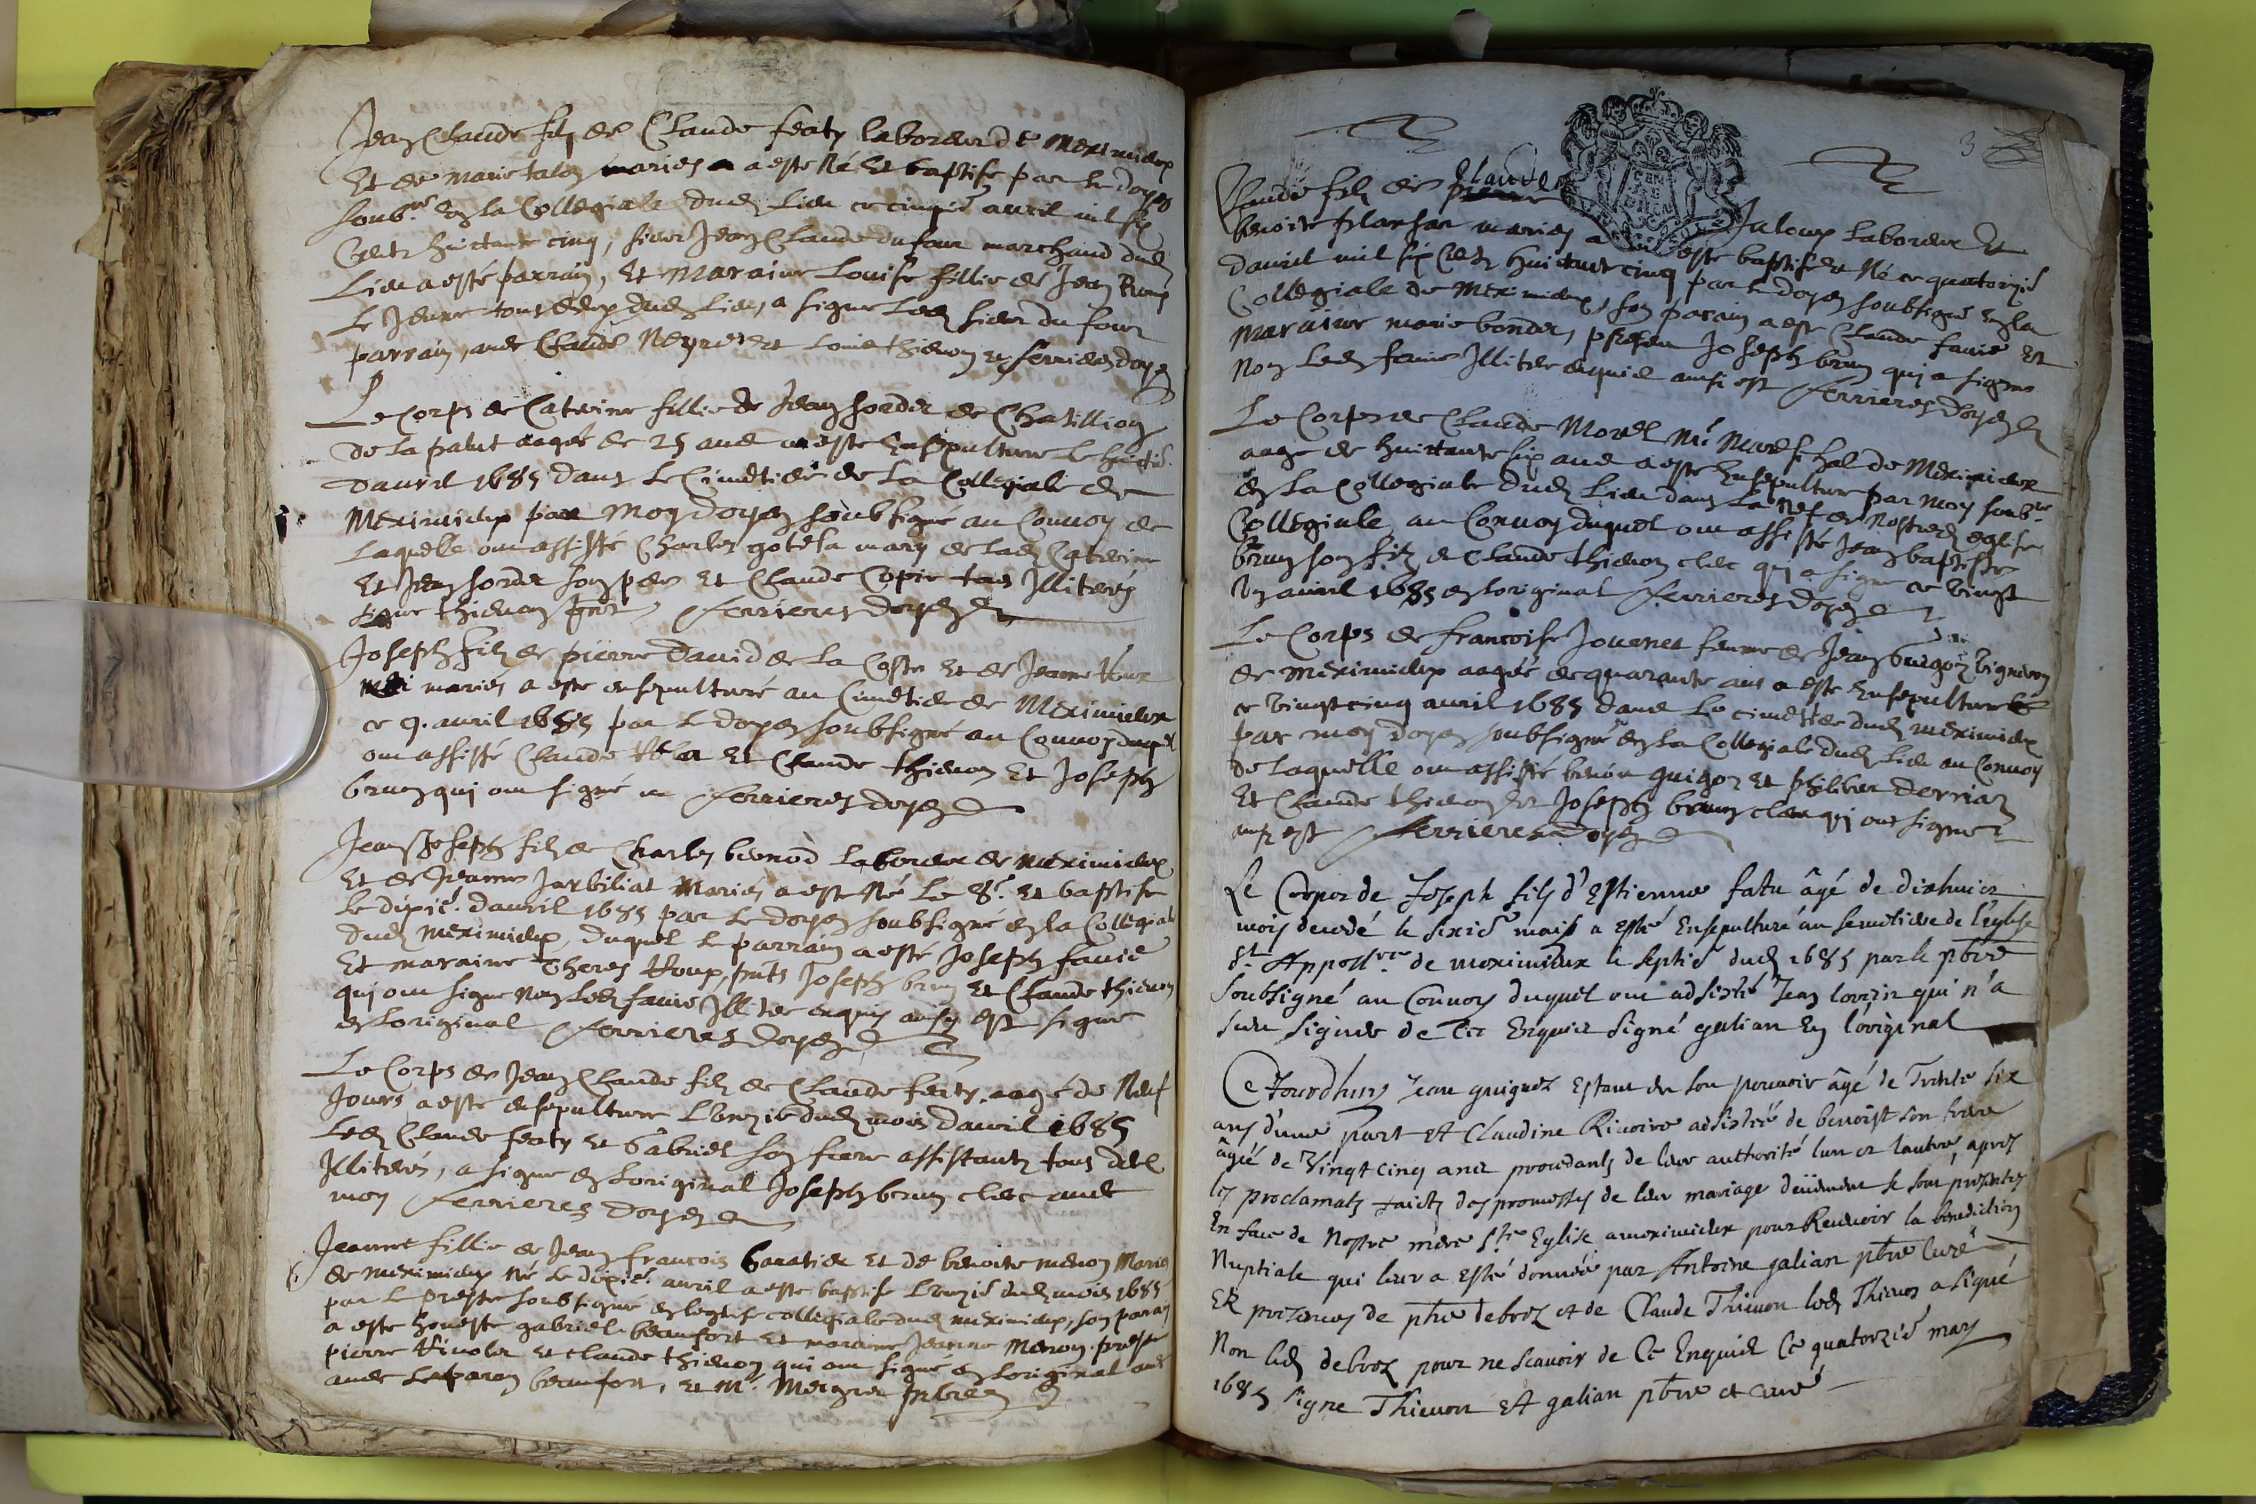 Jean Claude filz de Claude featy laboreur de Meximieux
Et de Marie talon mariés a esté Né Et baptisé par le doyen
soub.né En la Collegiale dud. Lieu ce cinqie avril mil six
Cents huictante cinq, sieur Jean Claude du four marchand dud.
Lieu a esté parrain, Et Maraine Louise fillie de Jean
Le Jeune tous deux dud. Lieu, a signé Led. sieur du four
parrain, avec Claude Neyret et Louis thievon et ferrieres doyen
Le Corps de Caterine fillie de Jean sorder de Chatillion
de la palut aagée de 25 ans a esté Ensepulturé le huictie
davril 1685 dans Le Cimetiere de La Collegiale de
Meximieux par Moy doyen soubsigné au Convoy de
Laquelle ont assisté Charles mary de lad. Caterine
Et Jean sorder son pere Et Claude Copie tous Illiterés
thievon ferrieres doyen
Joseph filz de pierre David de La Coste Et de Jeanne
mariés a esté ensepulturé au Cimetiere de Meximieux
ce 9. avril 1685 par Le doyen soubsigné au Convoy duquel
ont assisté Claude Et Claude thievon Et Joseph
brun qui ont signé ferrieres doyen
Jean Joseph filz de Charles benod Laboreur de Meximieux
Et de Jeanne Jarbiliat Mariés a esté Né Le 8.e Et baptisé
Le dixie. davril 1685 par Le doyen soubsigné en la Collegiale
dud. Meximieux, duquel Le parrain a esté Joseph favie
Et maraine Theres pnts Joseph brun Et Claude thievon
qui ont signé Non Led. favie Illiteré enquis ainsy est signé
en Loriginal ferrieres doyen
Le Corps de Jean Claude filz de Claude featy aagé de Neuf
Jours a esté ensepulturé L'onzie dud. mois davril 1685
Led. Claude featy Et Gabriel son frere assistants tous deux
Illiterés, a signé en Loriginal Joseph brun clerc avec
moy ferrieres doyen
Jeanne fillie de Jean francois baratier Et de benoite menon Mariés
de meximieux Né Le dixie. avril a esté baptisé L'onzie dud. mois 1685
par Le prestre soubsigné en leglise collegiale dud. meximieux, son parain
a esté honeste gabriel beaufort Et maraine Jeanne Menon. presents
pierre Et claude thievon qui ont signé en Loriginal avec
avec Le parain beaufort, et Mr.
3
Claude filz de Claude
Jaloux Laboreur Et
benoite mariés a esté baptisé Et Né ce quatorzie
davril mil six Cents huictante cinq par Le doyen soubsigné En la
Collegiale de Meximieux, son parain a esté Claude favie Et
maraine marie presens Joseph brun qui a signé
Non Led. favie Illiteré enquis ainsi est ferrieres doyen
Le Corps de Claude Morel Mr. de Meximieux
aagé de huictante six ans a esté Ensepulturé par Moy soub.né
en La Collegiale dud. Lieu dans La Nef de Nostred. eglise
Collegiale au Convoy duquel ont assisté Jean baptiste
brun son filz et Claude thievon clerc qui a signé ce vingt
avril 1685 en Loriginal ferrieres doyen
Le Corps de francoise Jouenet femme de Jean vigneron
de meximieux aagée de quarante ans a esté Ensepulturée
ce vingt cinq avril 1685 dans Le cimetiere dud. meximieux
par moy doyen soubsigné en La Collegiale dud. Lieu au Convoy
de Laquelle ont assisté benoit guigoz Et philibert derriaz
Et Claude thievon Et Joseph brun clerc qui ont signé
ainsy est ferrieres doyen
Le Corps de Joseph fils d'Estienne fatu âgé de dixhuict
mois decedé le sixie maiis a esté Ensepulturé au semetiere de l'eglise
St. Appoll.re de meximieux le septie dud. 1685 par le pbre
soubsigné au Convoy duquel ont adsisté Jean qui n'a
sceu signer de Ce Enquis signé galian En l'original
Ce Jourdhuy Jean guiguez Estant en son pouvoir âgé de Trente six
ans d'une part Et Claudine Rivoire adsistée de benoist son frere
âgée de Vingt cinq ans procedants de leur authorité l'un et lautre, apres
les proclamats faicts des promesses de leur mariage deüement se sont presentés
En face de Nostre mere Ste Eglise a meximieux pour Recevoir la benediction
Nuptiale qui leur a esté donnée par Antoine galian pbre Curé
Et presences de debroz et de Claude Thievon led. Thievon a signé
Non led. debroz pour ne scavoir de Ce Enquis Ce quatorzie may
1685 signe Thievon Et galian pbre et curé